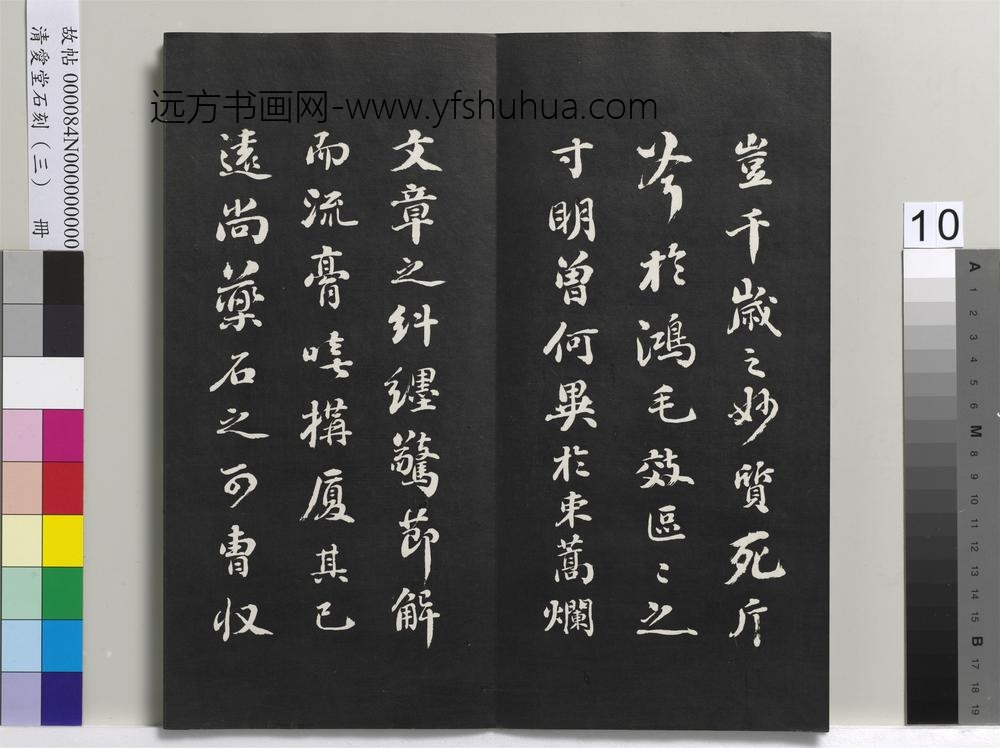 豈千歲之妙質死斤
斧於鴻毛效區〻之
寸明曽何異於束蒿爛
文章之糾纆驚節解
而流膏嘻構厦其已
遠尚藥石之可曹收
远方书画网-www.yfshuhua.com
故帖 000084N000000000
清愛堂石刻（三） 冊
10
A
1
2
3
4
5
6
M
8
9
10
11
12
13
14
15
B
17
18
19